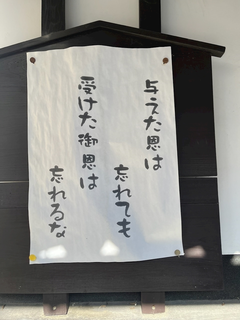 与えた恩は
忘れても
受けた御恩は
忘れるな